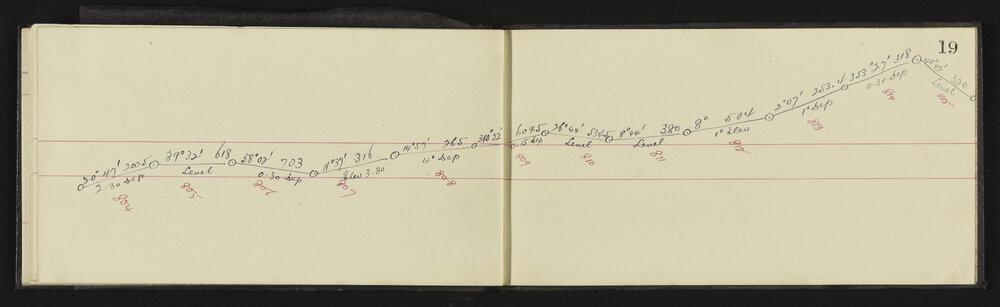 19
20°47' 200.5
2.30 Dep
804
39°32' 618
Level
805
58°02' 703
0.30 Dep
806
11°37' 316
Elev 3.30
807
14°57' 265
4° Dep
808
340°22' 609.5
0.15 Dep
809
26°44' 534.5
Level
810
8°44' 380
Level
811
8° 504
1° Elev
812
2°07' 253.4
1° Dep
813
353°27' 318
0.30 Dep
814
320
Level
815